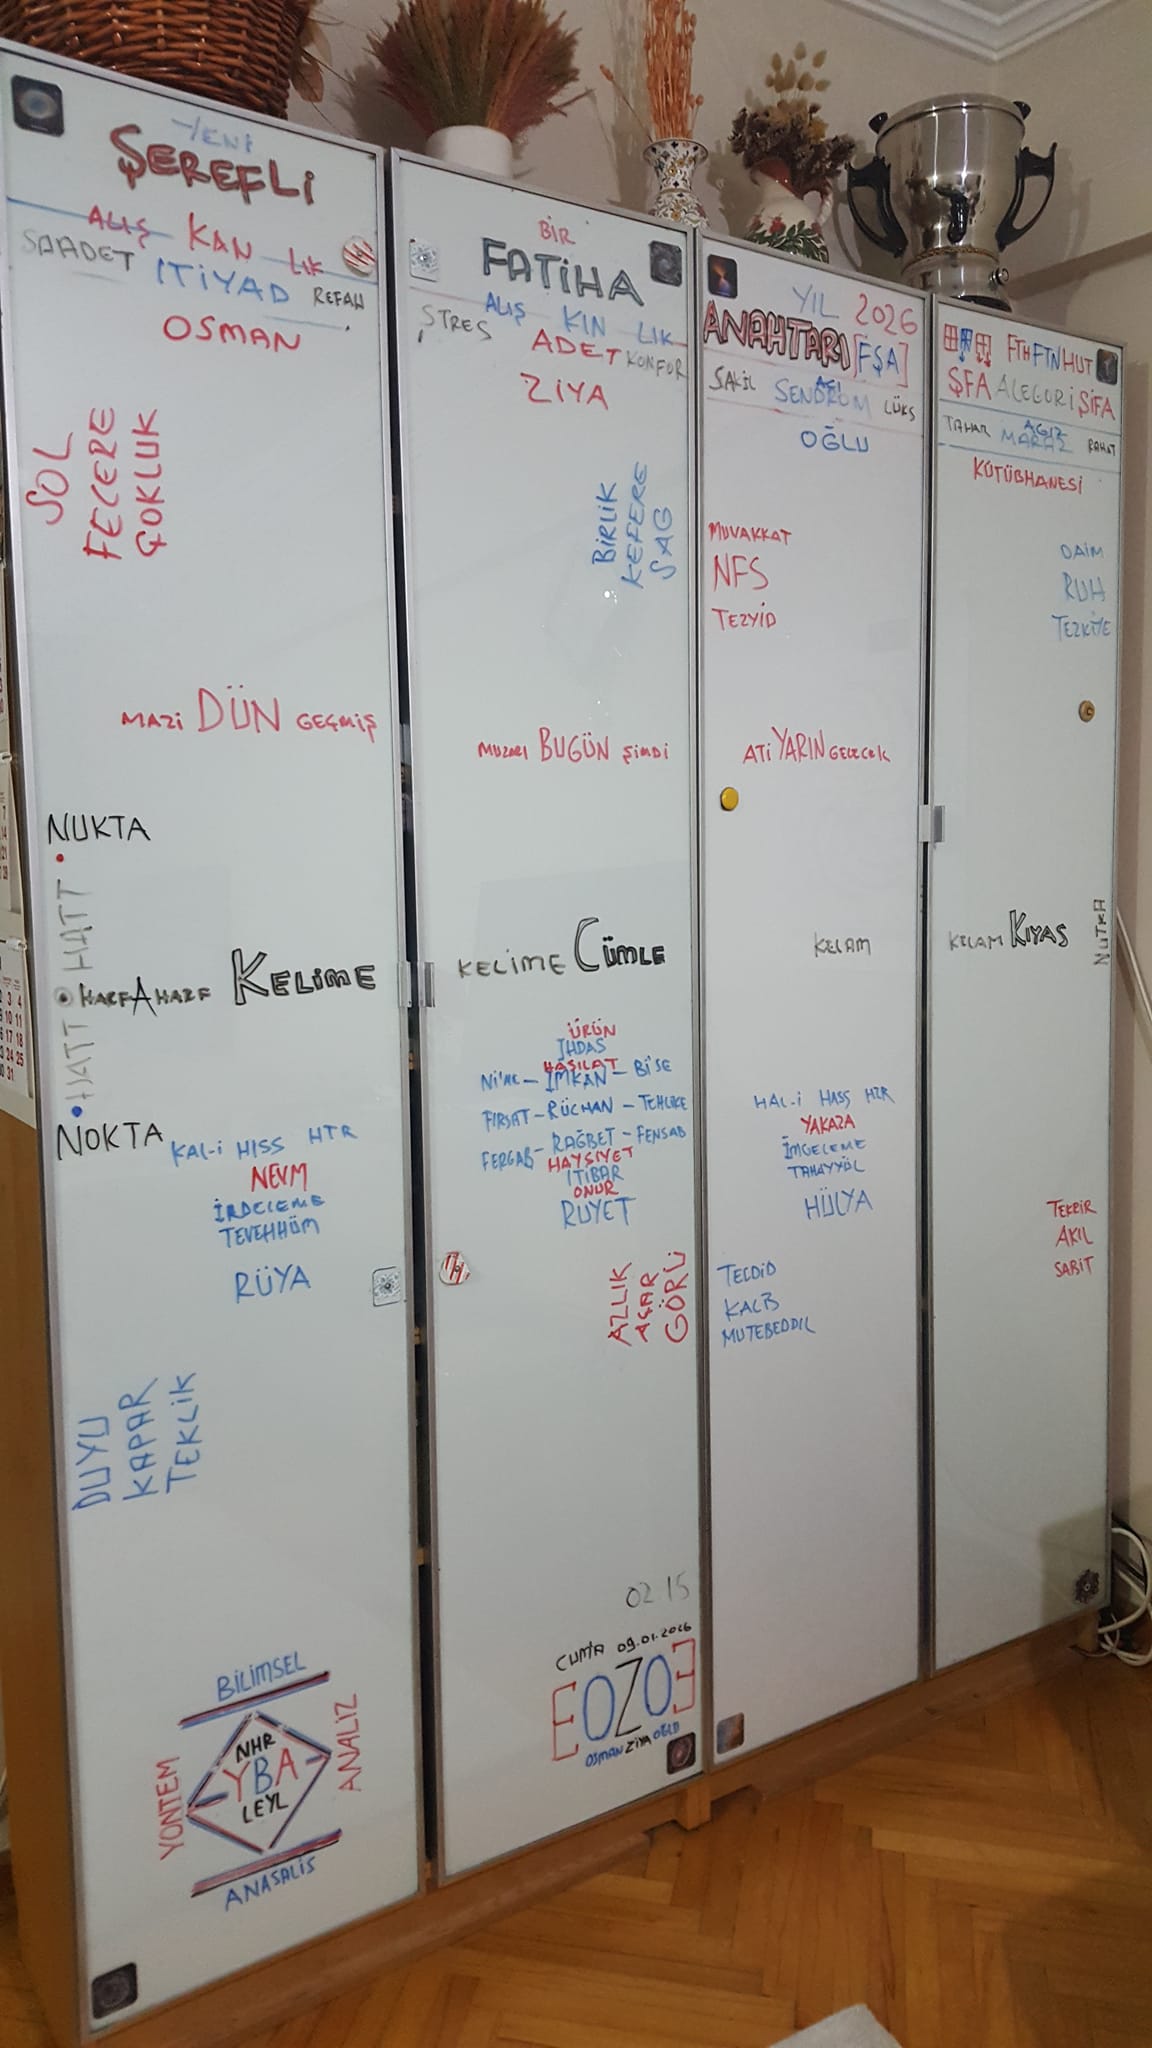 YENİ
ŞEREFLİ
ALIŞ KAN LIK
SAADET ITIYAD REFAH
OSMAN
SOL
FECERE
ÇOKLUK
MAZİ DÜN GEÇMİŞ
NUKTA
HATT
HARF A HARF KELİME
HATT
NOKTA KAL-İ HISS HTR
NEVM
İRDELEME
TEVEHHÜM
RÜYA
DUYU
KAPAR
TEKLİK
BİLİMSEL
YÖNTEM
NHR
YBA
LEYL
ANALİZ
ANASALIS
BİR
FATİHA
ALIŞ KIN LIK
STRES ADET KONFOR
ZİYA
BİRLİK
KEFERE
SAĞ
MUZARİ BUGÜN ŞİMDİ
KELİME CÜMLE
ÜRÜN
İHDAS
HASILAT
Nİ'ME - İMKAN - Bİ'SE
FIRSAT - RÜCHAN - TEHLİKE
FERGAB - RAĞBET - FENSAB
HAYSİYET
İTİBAR
ONUR
RUYET
AZLIK
AÇAR
GÖRÜ
02 15
CUMA 09.01.2026
EOZOE
OSMAN ZİYA OĞLU
YIL 2026
ANAHTARI [FŞA]
AĞI
SAKİL SENDROM LÜKS
OĞLU
MUVAKKAT
NFS
TEZYİD
ATİ YARIN GELECEK
KELAM
HAL-İ HASS HZR
YAKAZA
İMGELEME
TAHAYYÜL
HÜLYA
TECDİD
KALB
MUTEBEDDIL
FTH FTN HUT
ŞFA ALEGORİ ŞİFA
AĞIZ
TAHAR MARAZ RAHAT
KÜTÜBHANESİ
DAİM
RUH
TEZKİYE
KELAM KIYAS
NUTKA
TEKRİR
AKIL
SABİT